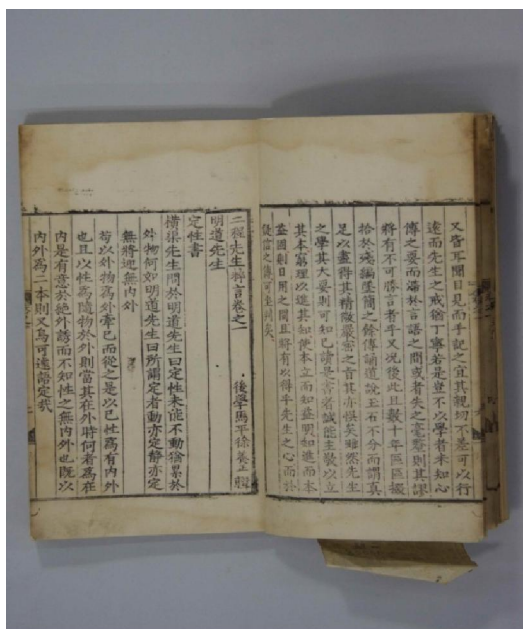 又皆耳聞目見而手記之宜其親切不差可以行
遠而先生之戒猶丁寧若是豈不以學者未知心
傳之要而滯於言語之間或者失之毫釐則其謬
將有不可勝言者乎又況後此且數十年區區掇
拾於殘編墜簡之餘傳誦道說玉石不分而謂真
足以盡得其精微嚴密之旨其亦悞矣雖然先生
之學其大要則可知已讀是書者誠能主敬以立
其本窮理以進其知使本立而知益明知進而本
益固則日用之間且將有以得乎先生之心而於
疑信之傳可坐判矣
二程先生粹言卷之一
後學馬平徐養正
明道先生
定性書
橫渠先生問於明道先生曰定性未能不動猶累於
外物何如明道先生曰所謂定者動亦定靜亦定
無將迎無內外
苟以外物為外牽己而從之是以己性為有內外
也且以性為隨物於外則當其在外時何者為在
內是有意於絕外誘而不知性之無內外也既以
內外為二本則又烏可遽語定哉